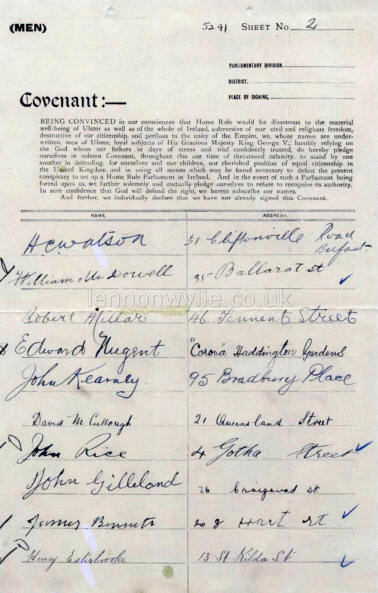 (MEN)
5291 SHEET No. 2
PARLIAMENTARY DIVISION,
DISTRICT,
PLACE OF SIGNING,
Covenant:—
BEING CONVINCED in our consciences that Home Rule would be disastrous to the material
well-being of Ulster as well as of the whole of Ireland, subversive of our civil and religious freedom,
destructive of our citizenship, and perilous to the unity of the Empire, we, whose names are under-
written, men of Ulster, loyal subjects of His Gracious Majesty King George V., humbly relying on
the God whom our fathers in days of stress and trial confidently trusted, do hereby pledge
ourselves in solemn Covenant, throughout this our time of threatened calamity, to stand by one
another in defending, for ourselves and our children, our cherished position of equal citizenship in
the United Kingdom and in using all means which may be found necessary to defeat the present
conspiracy to set up a Home Rule Parliament in Ireland. And in the event of such a Parliament being
forced upon us, we further solemnly and mutually pledge ourselves to refuse to recognise its authority.
In sure confidence that God will defend the right, we hereto subscribe our names.
And further, we individually declare that we have not already signed this Covenant.
NAME. ADDRESS.
HC Watson 31 Cliftonville Road Belfast
William McDowell 35 Ballarat st
lennonwylie.co.uk
Robert Millar 46 Tennent Street
Edward Nugent "Corona Haddington Gardens
John Kearney. 95 Bradbury Place
David McCullough 21 Queensland Street
John Rice 4 Gotha Street
John Gilleland 26 Craigavad st
James Bennett 208 Hart st
Henry Esterbrooke 13 St Kilda St